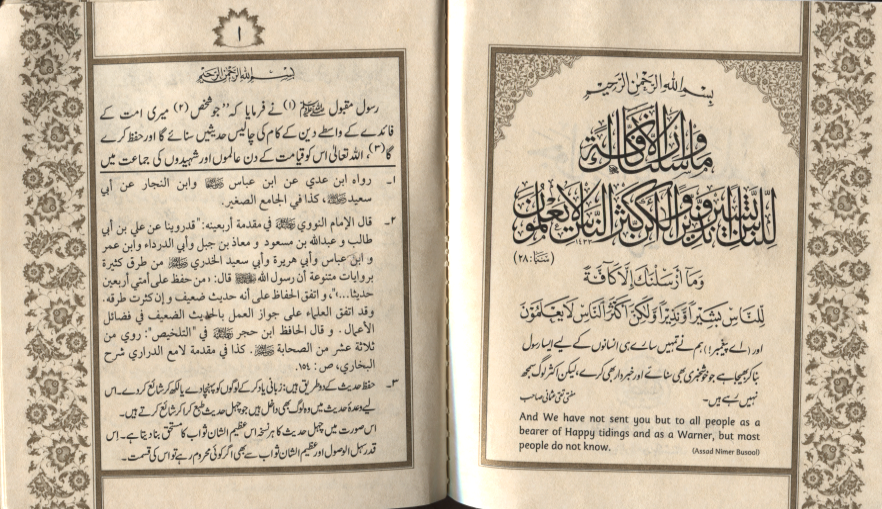 ١
بسم الله الرحمن الرحيم
رسول مقبول ﷺ (۱) نے فرمایا کہ "جو شخص (۲) میری امت کے
فائدے کے واسطے دین کے کام کی چالیس حدیثیں سنائے گا اور حفظ کرے
گا (۳)، اللہ تعالیٰ اس کو قیامت کے دن عالموں اور شہیدوں کی جماعت میں
١ـ رواه ابن عدي عن ابن عباس وابن النجار عن أبي
سعيد، كذا في الجامع الصغير.
٢ـ قال الإمام النووي في مقدمة أربعينه: "قد روينا عن علي بن أبي
طالب و عبدالله بن مسعود و معاذ بن جبل وأبي الدرداء وابن عمر
و ابن عباس وأبي هريرة وأبي سعيد الخدري من طرق كثيرة
بروايات متنوعة أن رسول الله ﷺ قال: «من حفظ على أمتي أربعين
حديثا...»، و اتفق الحفاظ على أنه حديث ضعيف و إن كثرت طرقه.
وقد اتفق العلماء على جواز العمل بالحديث الضعيف في فضائل
الأعمال. و قال الحافظ ابن حجر في "التلخيص": روي من
ثلاثة عشر من الصحابة. كذا في مقدمة لامع الدراري شرح
البخاري، ص: ١٥٤.
٣ـ حفظ حدیث کے دو طریق ہیں: زبانی یاد کر کے لوگوں کو پہنچا دے یا لکھ کر شائع کر دے۔ اس
لیے وعدۂ حدیث میں وہ لوگ بھی داخل ہیں جو چہل حدیث طبع کرا کر شائع کرتے ہیں۔
اس صورت میں چہل حدیث کا ہر نسخہ اس عظیم الشان ثواب کا مستحق بنا دیتا ہے۔ اس
قدر سہل الوصول اور عظیم الشان ثواب سے بھی اگر کوئی محروم رہے تو اس کی قسمت۔
بسم الله الرحمن الرحيم
وما أرسلناك إلا كافة
للناس بشيرا ونذيرا ولكن أكثر الناس لا يعلمون
(سبا: ۲۸)
وَمَا أَرْسَلْنٰكَ اِلَّا كَافَّةً
لِّلنَّاسِ بَشِيْرًا وَّنَذِيْرًا وَّلٰكِنَّ اَكْثَرَ النَّاسِ لَا يَعْلَمُوْنَ
اور (اے پیغمبر!) ہم نے تمہیں سارے ہی انسانوں کے لیے ایسا رسول
بنا کر بھیجا ہے جو خوشخبری بھی سنائے اور خبردار بھی کرے، لیکن اکثر لوگ سمجھ
نہیں رہے ہیں۔ مفتی تقی عثمانی صاحب
And We have not sent you but to all people as a
bearer of Happy tidings and as a Warner, but most
people do not know.
(Assad Nimer Busool)